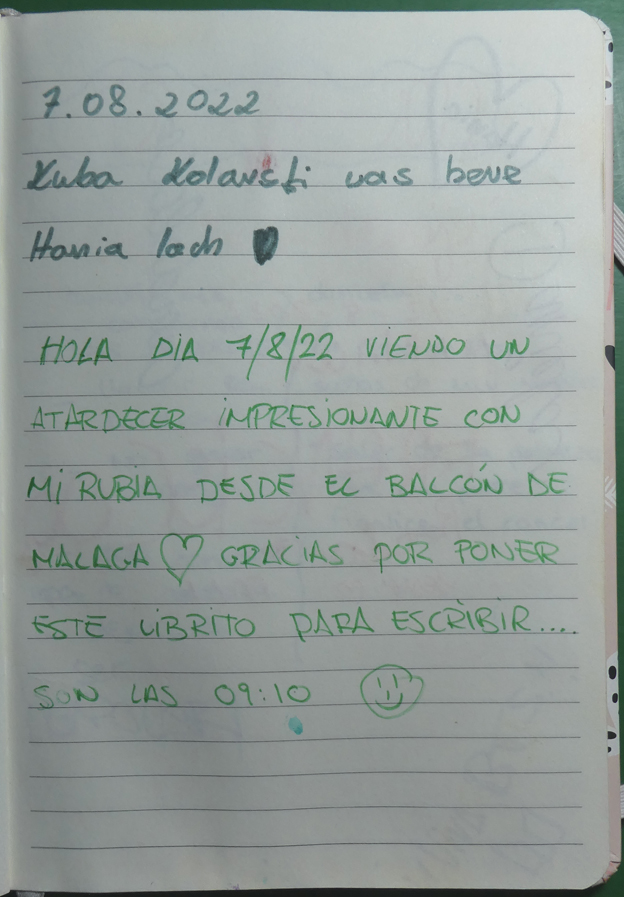 7.08.2022
Kuba Kolarski was bere
Hania lach
HOLA DIA 7/8/22 VIENDO UN
ATARDECER IMPRESIONANTE CON
MI RUBIA DESDE EL BALCÓN DE
MALAGA ♡ GRACIAS POR PONER
ESTE LIBRITO PARA ESCRIBIR....
SON LAS 09:10